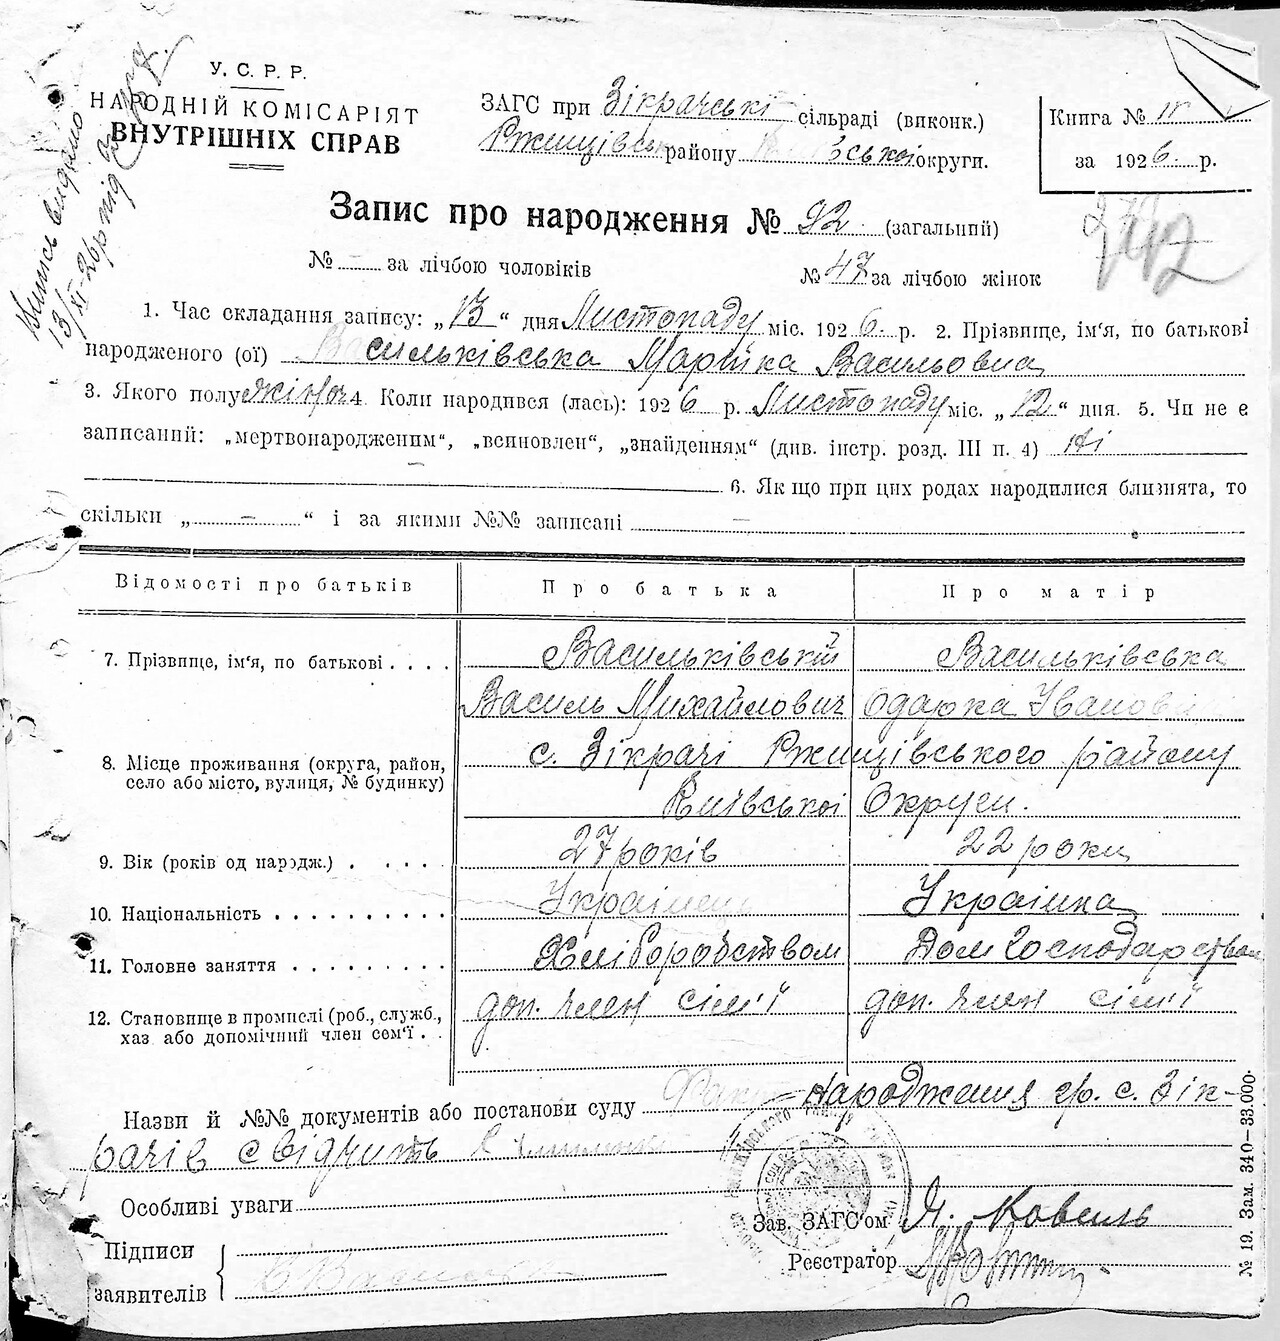 Випись видано
13/XI-26р під
У. С. Р. Р.
НАРОДНІЙ КОМІСАРІЯТ
ВНУТРІШНІХ СПРАВ
ЗАГС при Зікрачські сільраді (виконк.)
Ржищівськ району вської округи.
Книга №
за 1926 р.
Запис про народження № 92 (загальний)
№ — за лічбою чоловіків № 47 за лічбою жінок
1. Час складання запису: „13“ дня Листопаду міс. 1926 р. 2. Прізвище, ім'я, по батькові
народженого (ої) Васильківська Марійка Васильовна
3. Якого полу жіноч 4. Коли народився (лась): 1926 р. Листопаду міс. „12“ дня. 5. Чи не є
записаний: „мертвонародженим“, „всиновлен“, „знайденням“ (див. інстр. розд. III п. 4) Ні
6. Якщо при цих родах народилися близнята, то
скільки „ — “ і за якими №№ записані —
Відомості про батьків Про батька Про матір
7. Прізвище, ім'я, по батькові . . . . Васильківський Васильківська
Василь Михайлович Одарка Іванов
8. Місце проживання (округа, район, село або місто, вулиця, № будинку) с. Зікрачі Ржищівського району
Київської Округи.
9. Вік (років од народж.) . . . . . 27 років 22 роки
10. Національність . . . . . . . . . . Українець Українка
11. Головне заняття . . . . . . . . . Хліборобством Дом Господарством
12. Становище в промислі (роб., служб., хаз. або допомічний член сем'ї . . доп. член сім'ї доп. член сім'ї
Назви й №№ документів або постанови суду Факт народження гр. с. Зік-
рачів свідчить
Особливі уваги
Зав. ЗАГС'ом Я. Коваль
Підписи
заявителів В Василь
Реєстратор
№ 19. Зам. 340—33.000.